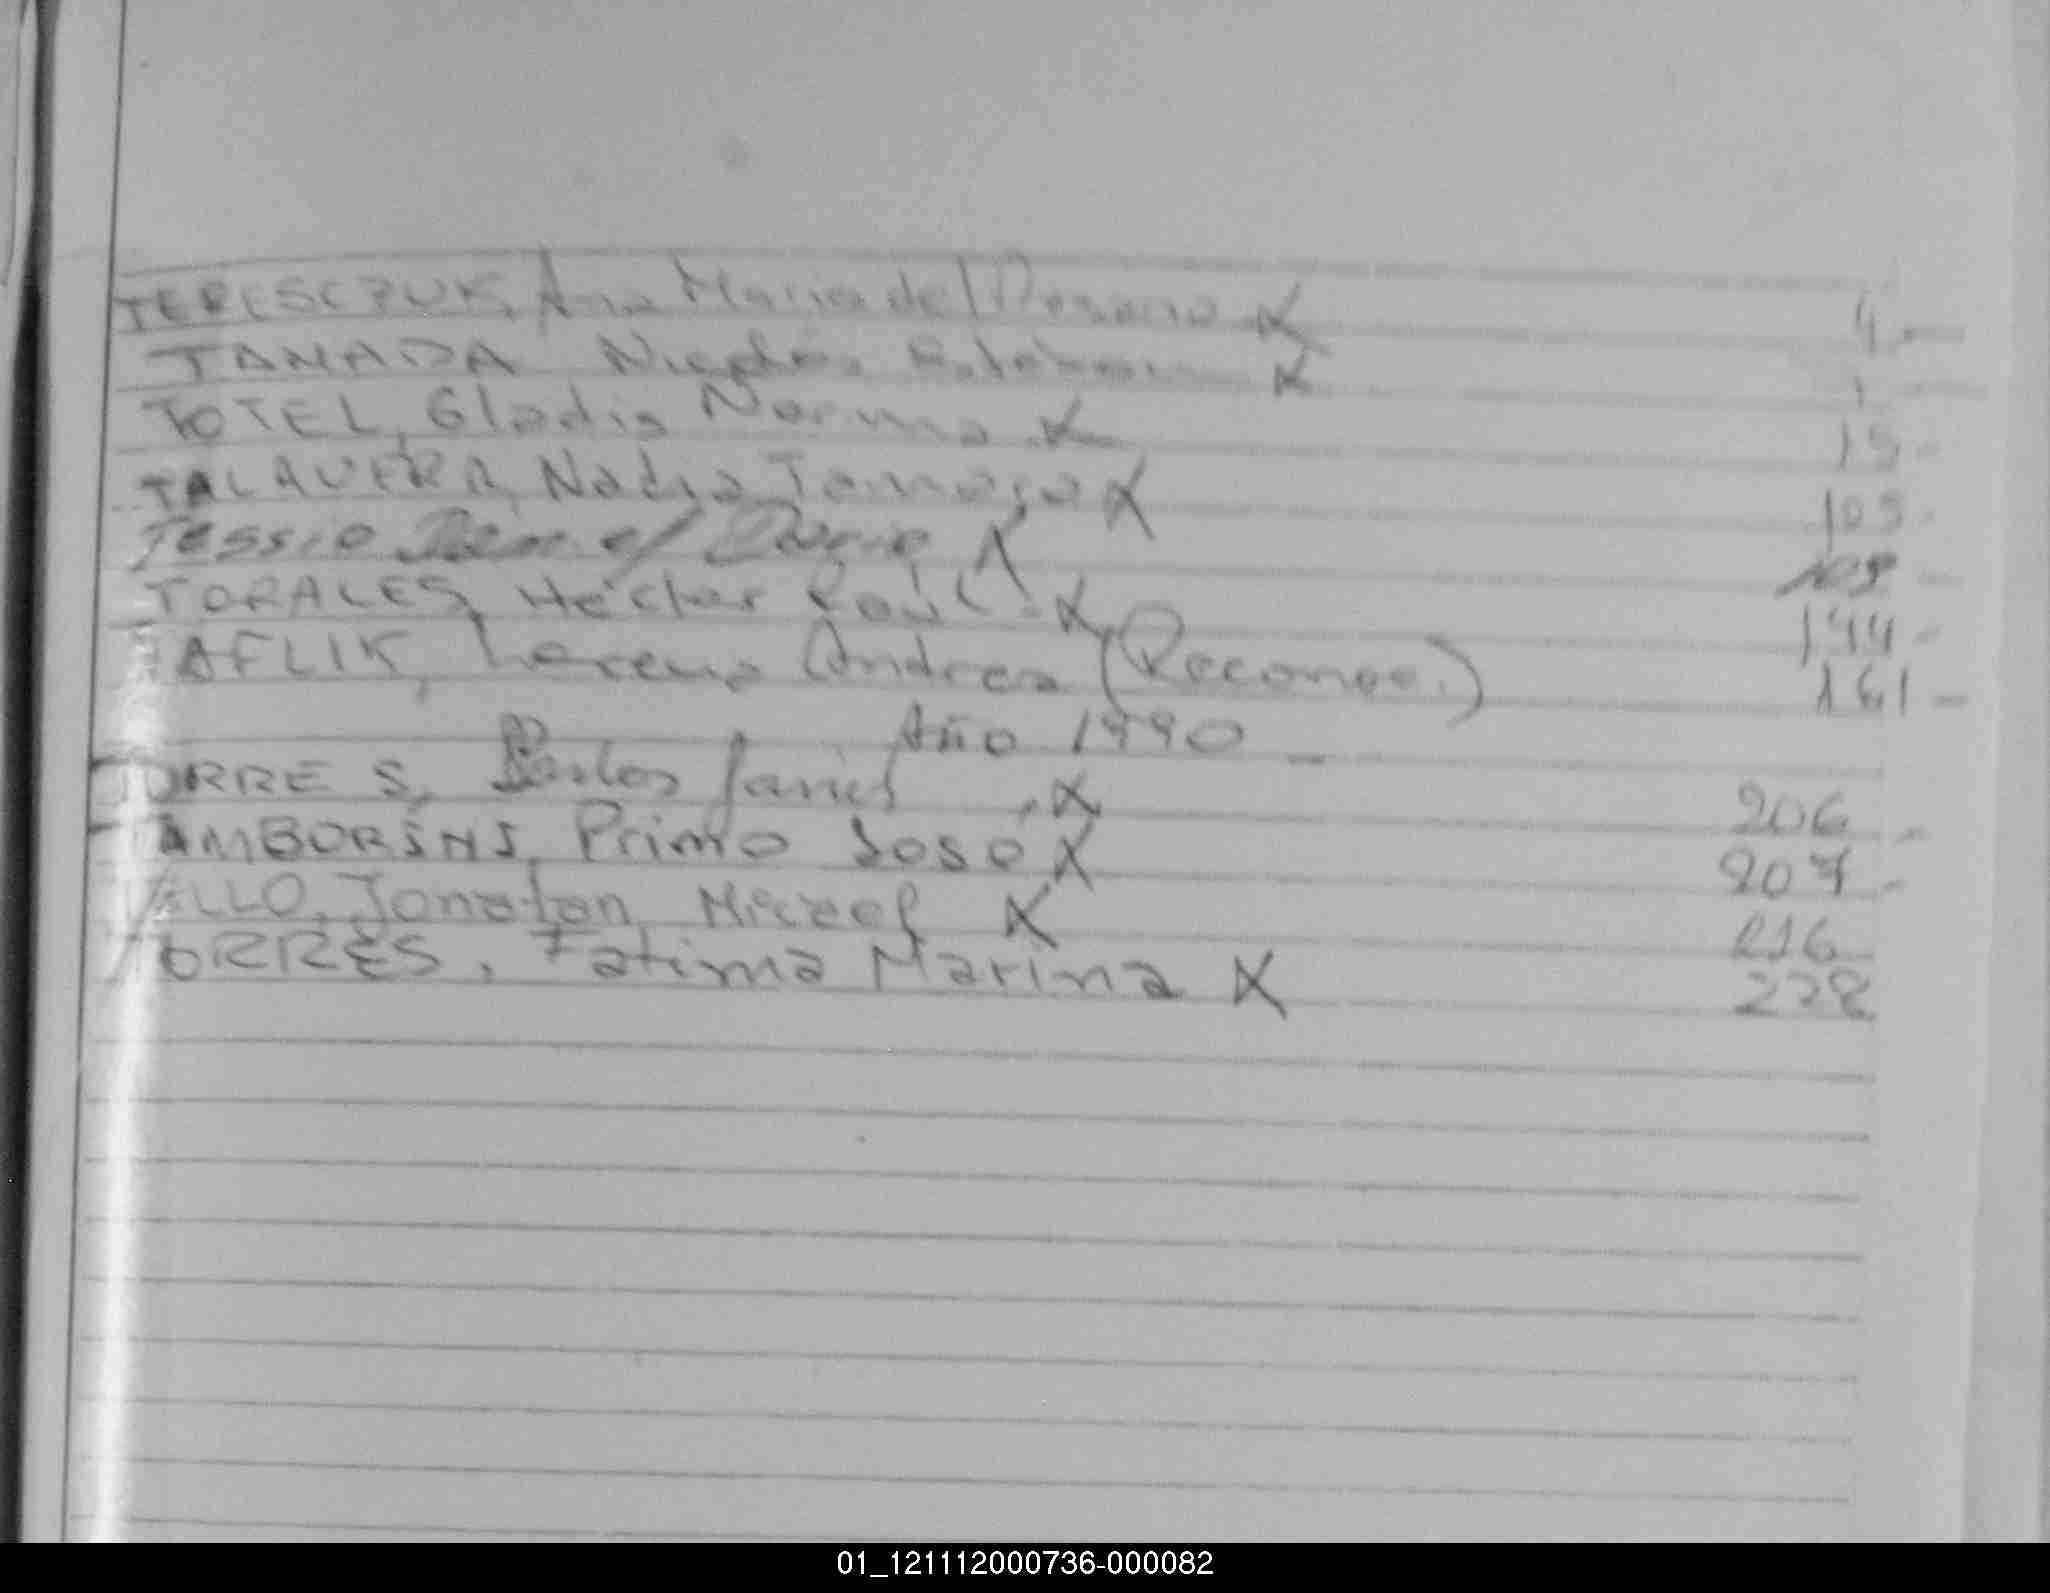 TERESCZUK, Ana Maria del Rosario X 4 -
TANADA Nicolás Esteban X 1 -
TOTEL, Gladis Norma X 15 -
TALAVERA, Nadia Tamara X 105 -
Tessio X 109 -
TORALES, Héctor Raúl X 144 -
TAFLIK, Lorena Andrea (Reconoc.) 161 -
Año 1990
TORRES, Carlos Javier X 206 -
TAMBORINI, Primo José X 207 -
TELLO, Jonatan Micael X 216
TORRES, Fatima Marina X 228
01_121112000736-000082